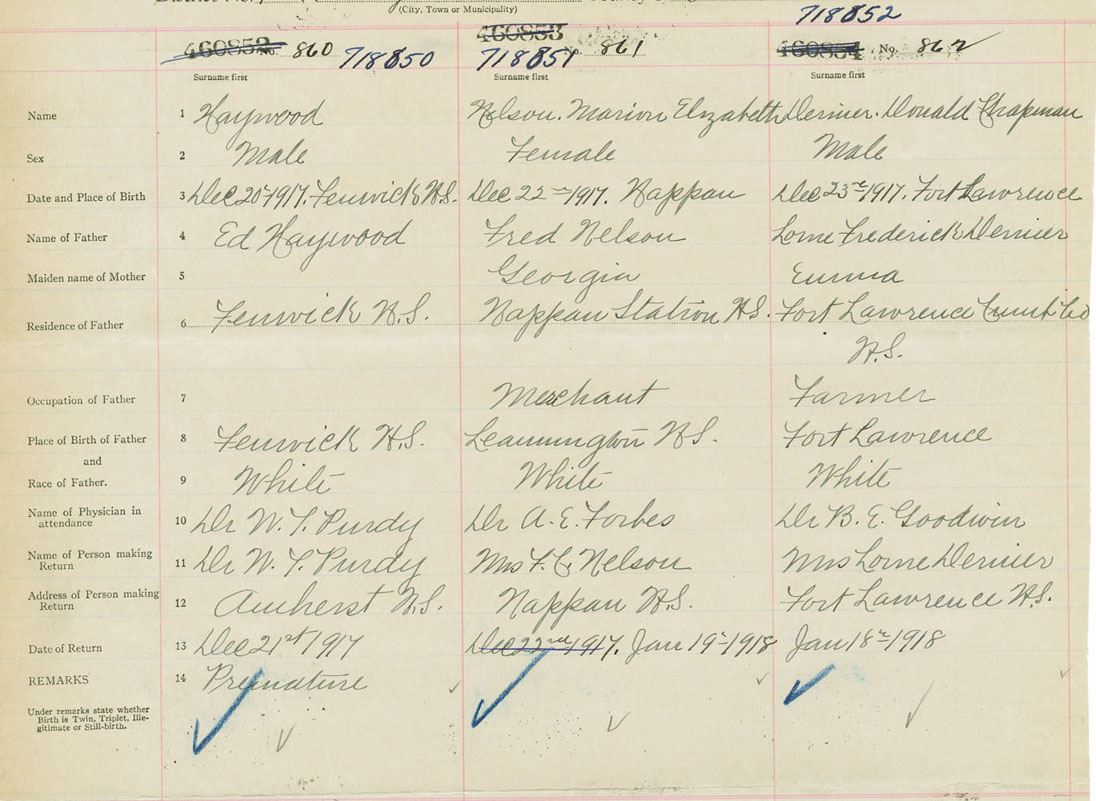 (City, Town or Municipality)
718852
460852 No. 860 718850
460853 718851 No. 861
460854 No. 862
Surname first Surname first Surname first
Name 1 Haywood Nelson. Marion Elizabeth Dernier. Donald Chapman
Sex 2 Male Female Male
Date and Place of Birth 3 Dec 20th 1917. Fenwick N.S. Dec 22nd 1917. Nappan Dec 23rd 1917. Fort Lawrence
Name of Father 4 Ed Haywood Fred Nelson Lorne Frederick Dernier
Maiden name of Mother 5 Georgia Emma
Residence of Father 6 Fenwick N.S. Nappan Station N.S. Fort Lawrence Cumb Co
N.S.
Occupation of Father 7 Merchant Farmer
Place of Birth of Father 8 Fenwick N.S. Leamington N.S. Fort Lawrence
and
Race of Father. 9 White White White
Name of Physician in
attendance 10 Dr W. T. Purdy Dr A. E. Forbes Dr B. E. Goodwin
Name of Person making
Return 11 Dr W. T. Purdy Mrs F. C. Nelson Mrs Lorne Dernier
Address of Person making
Return 12 Amherst N.S. Nappan N.S. Fort Lawrence N.S.
Date of Return 13 Dec 21st 1917 Dec 22nd 1917. Jan 19th 1918 Jan 18th 1918
REMARKS 14 Premature
Under remarks state whether
Birth is Twin, Triplet, Ille-
gitimate or Still-birth.